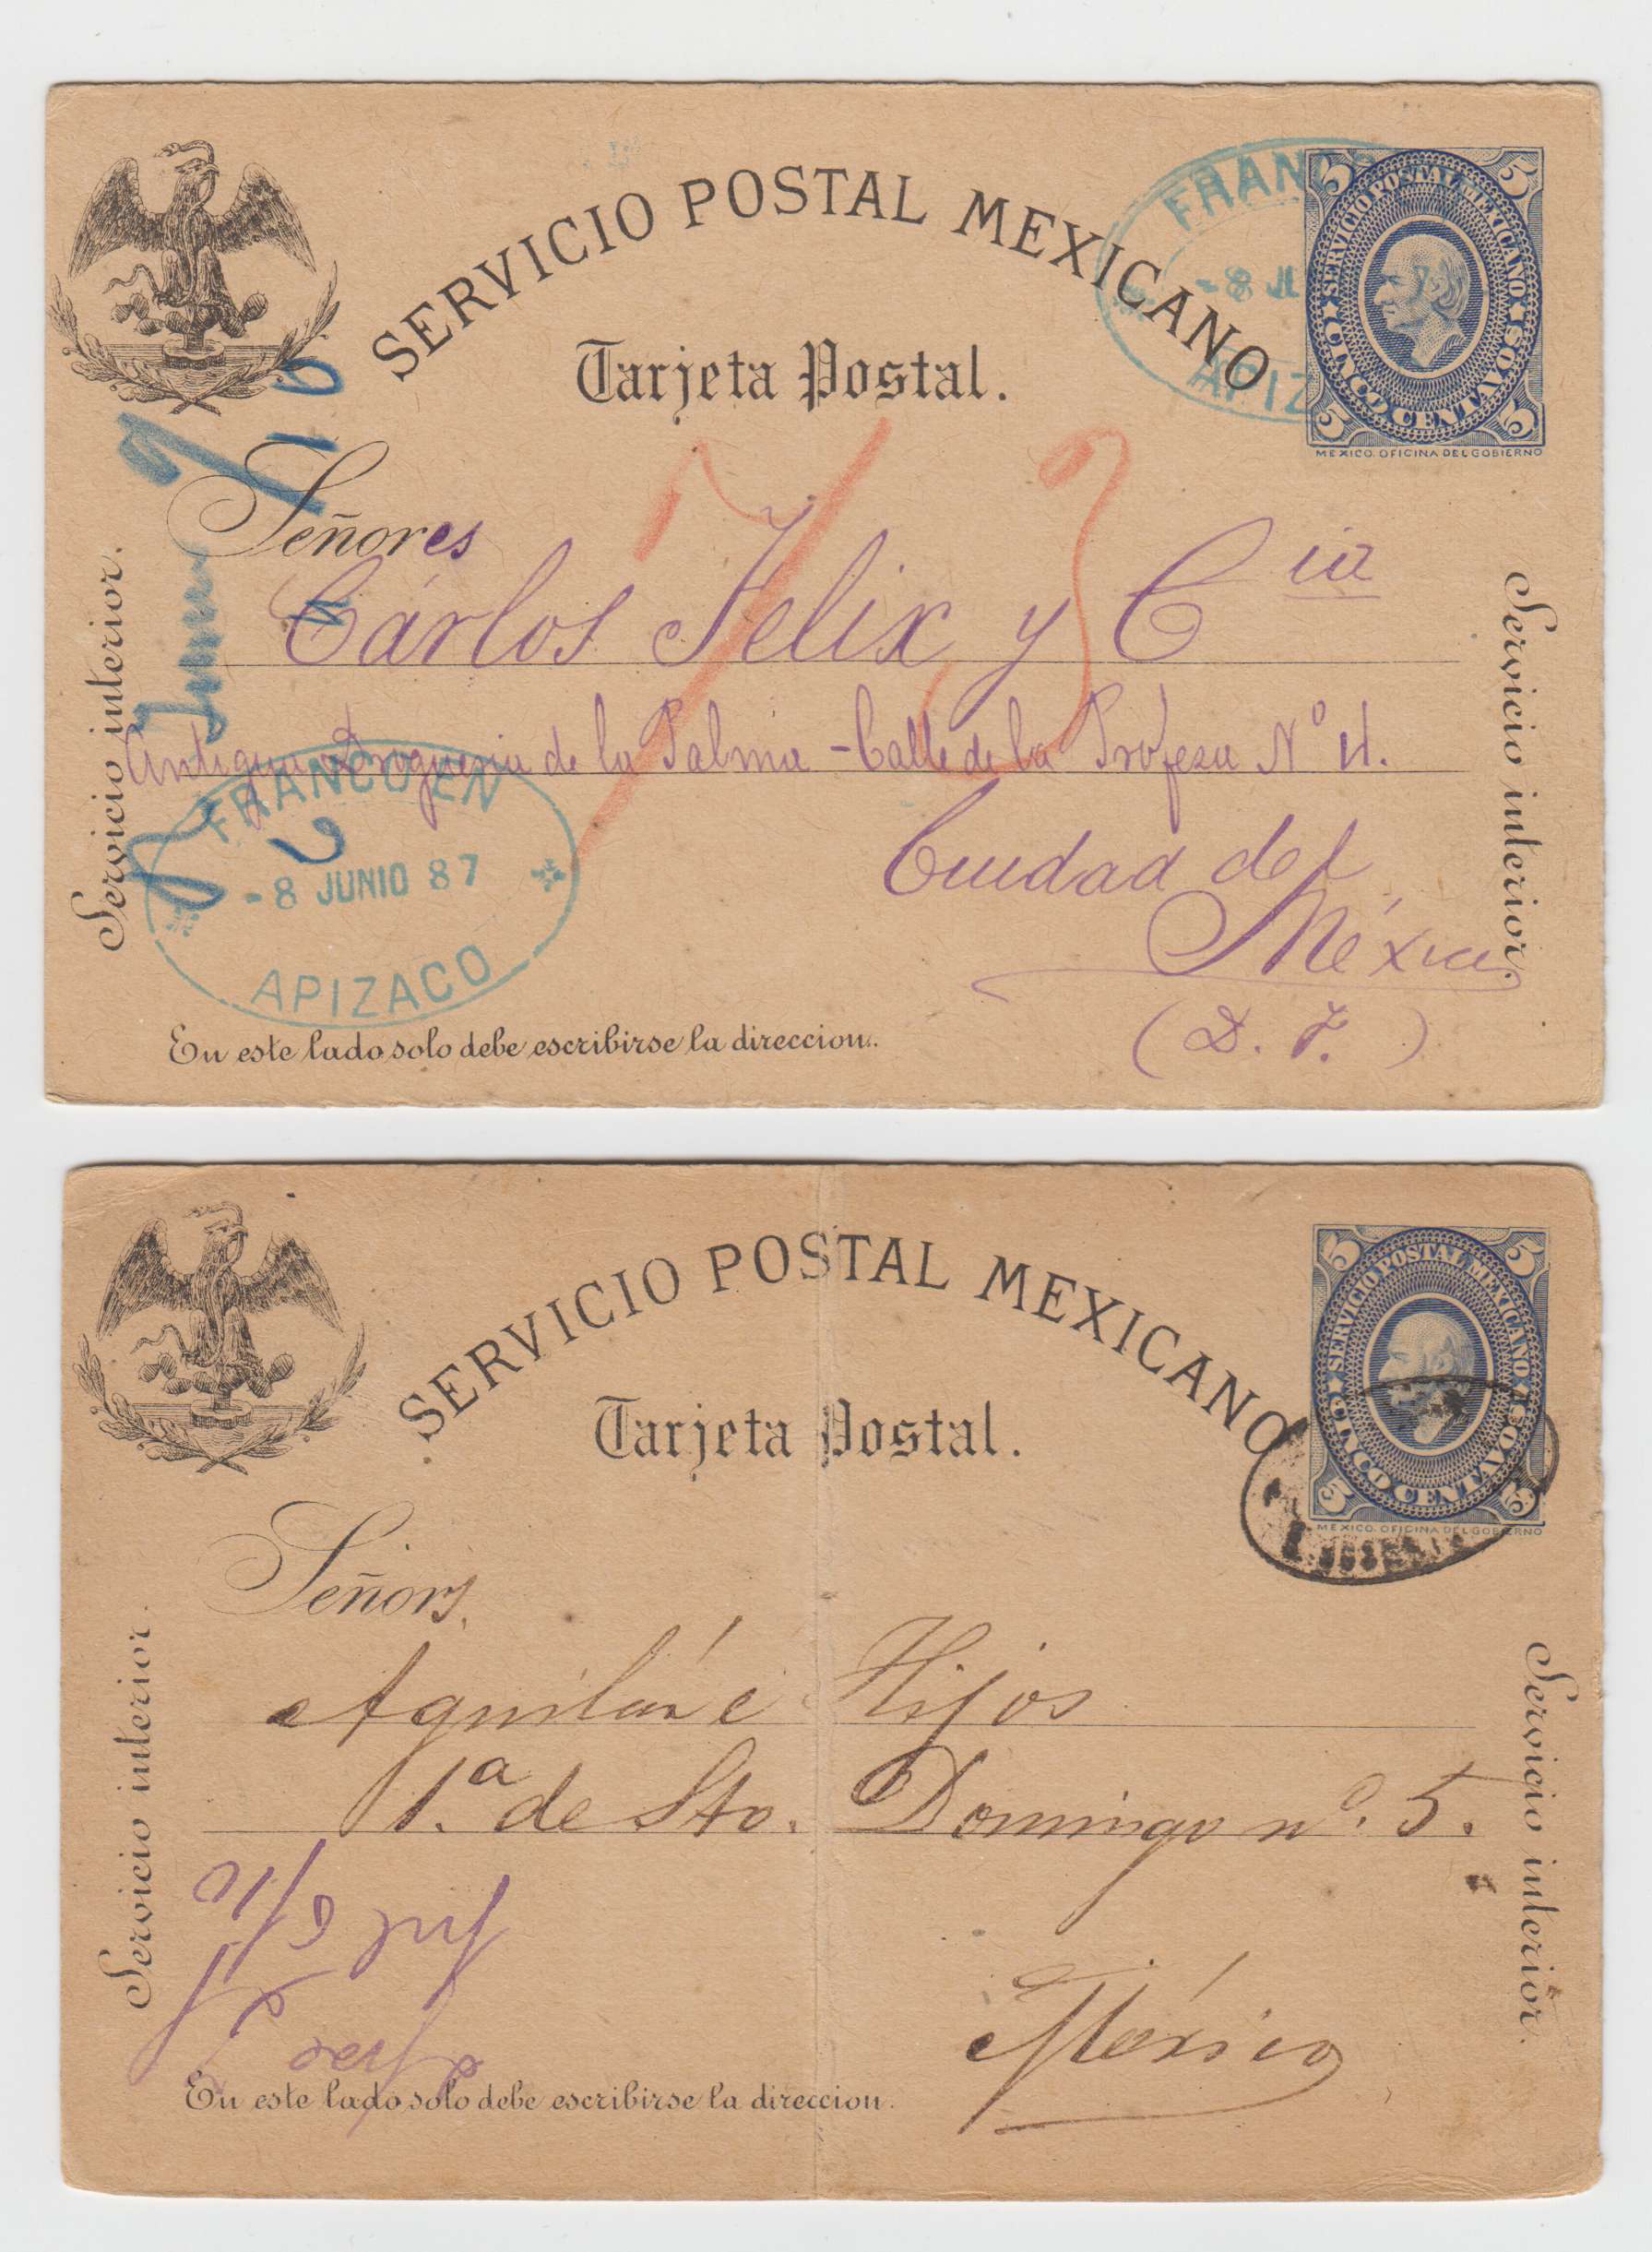 SERVICIO POSTAL MEXICANO
Tarjeta Postal.
FRAN
-8 JU
APIZ
5 5
SERVICIO POSTAL MEXICANO
CINCO CENTAVOS
5 5
MEXICO. OFICINA DEL GOBIERNO
Señores
73
Cárlos Felix y Cia
Antigua Drogueria de la Palma - Calle de la Profesa Nº 11.
Ciudad de
México
(D. F.)
FRANCO EN
-8 JUNIO 87
APIZACO
Servicio interior.
Servicio interior.
En este lado solo debe escribirse la direccion.
SERVICIO POSTAL MEXICANO
Tarjeta Postal.
5 5
SERVICIO POSTAL MEXICANO
CINCO CENTAVOS
5 5
MEXICO. OFICINA DEL GOBIERNO
Señors,
Aguilar é Hijos
1.ª de Sto. Domingo nº. 5.
México
Servicio interior.
Servicio interior.
En este lado solo debe escribirse la direccion.